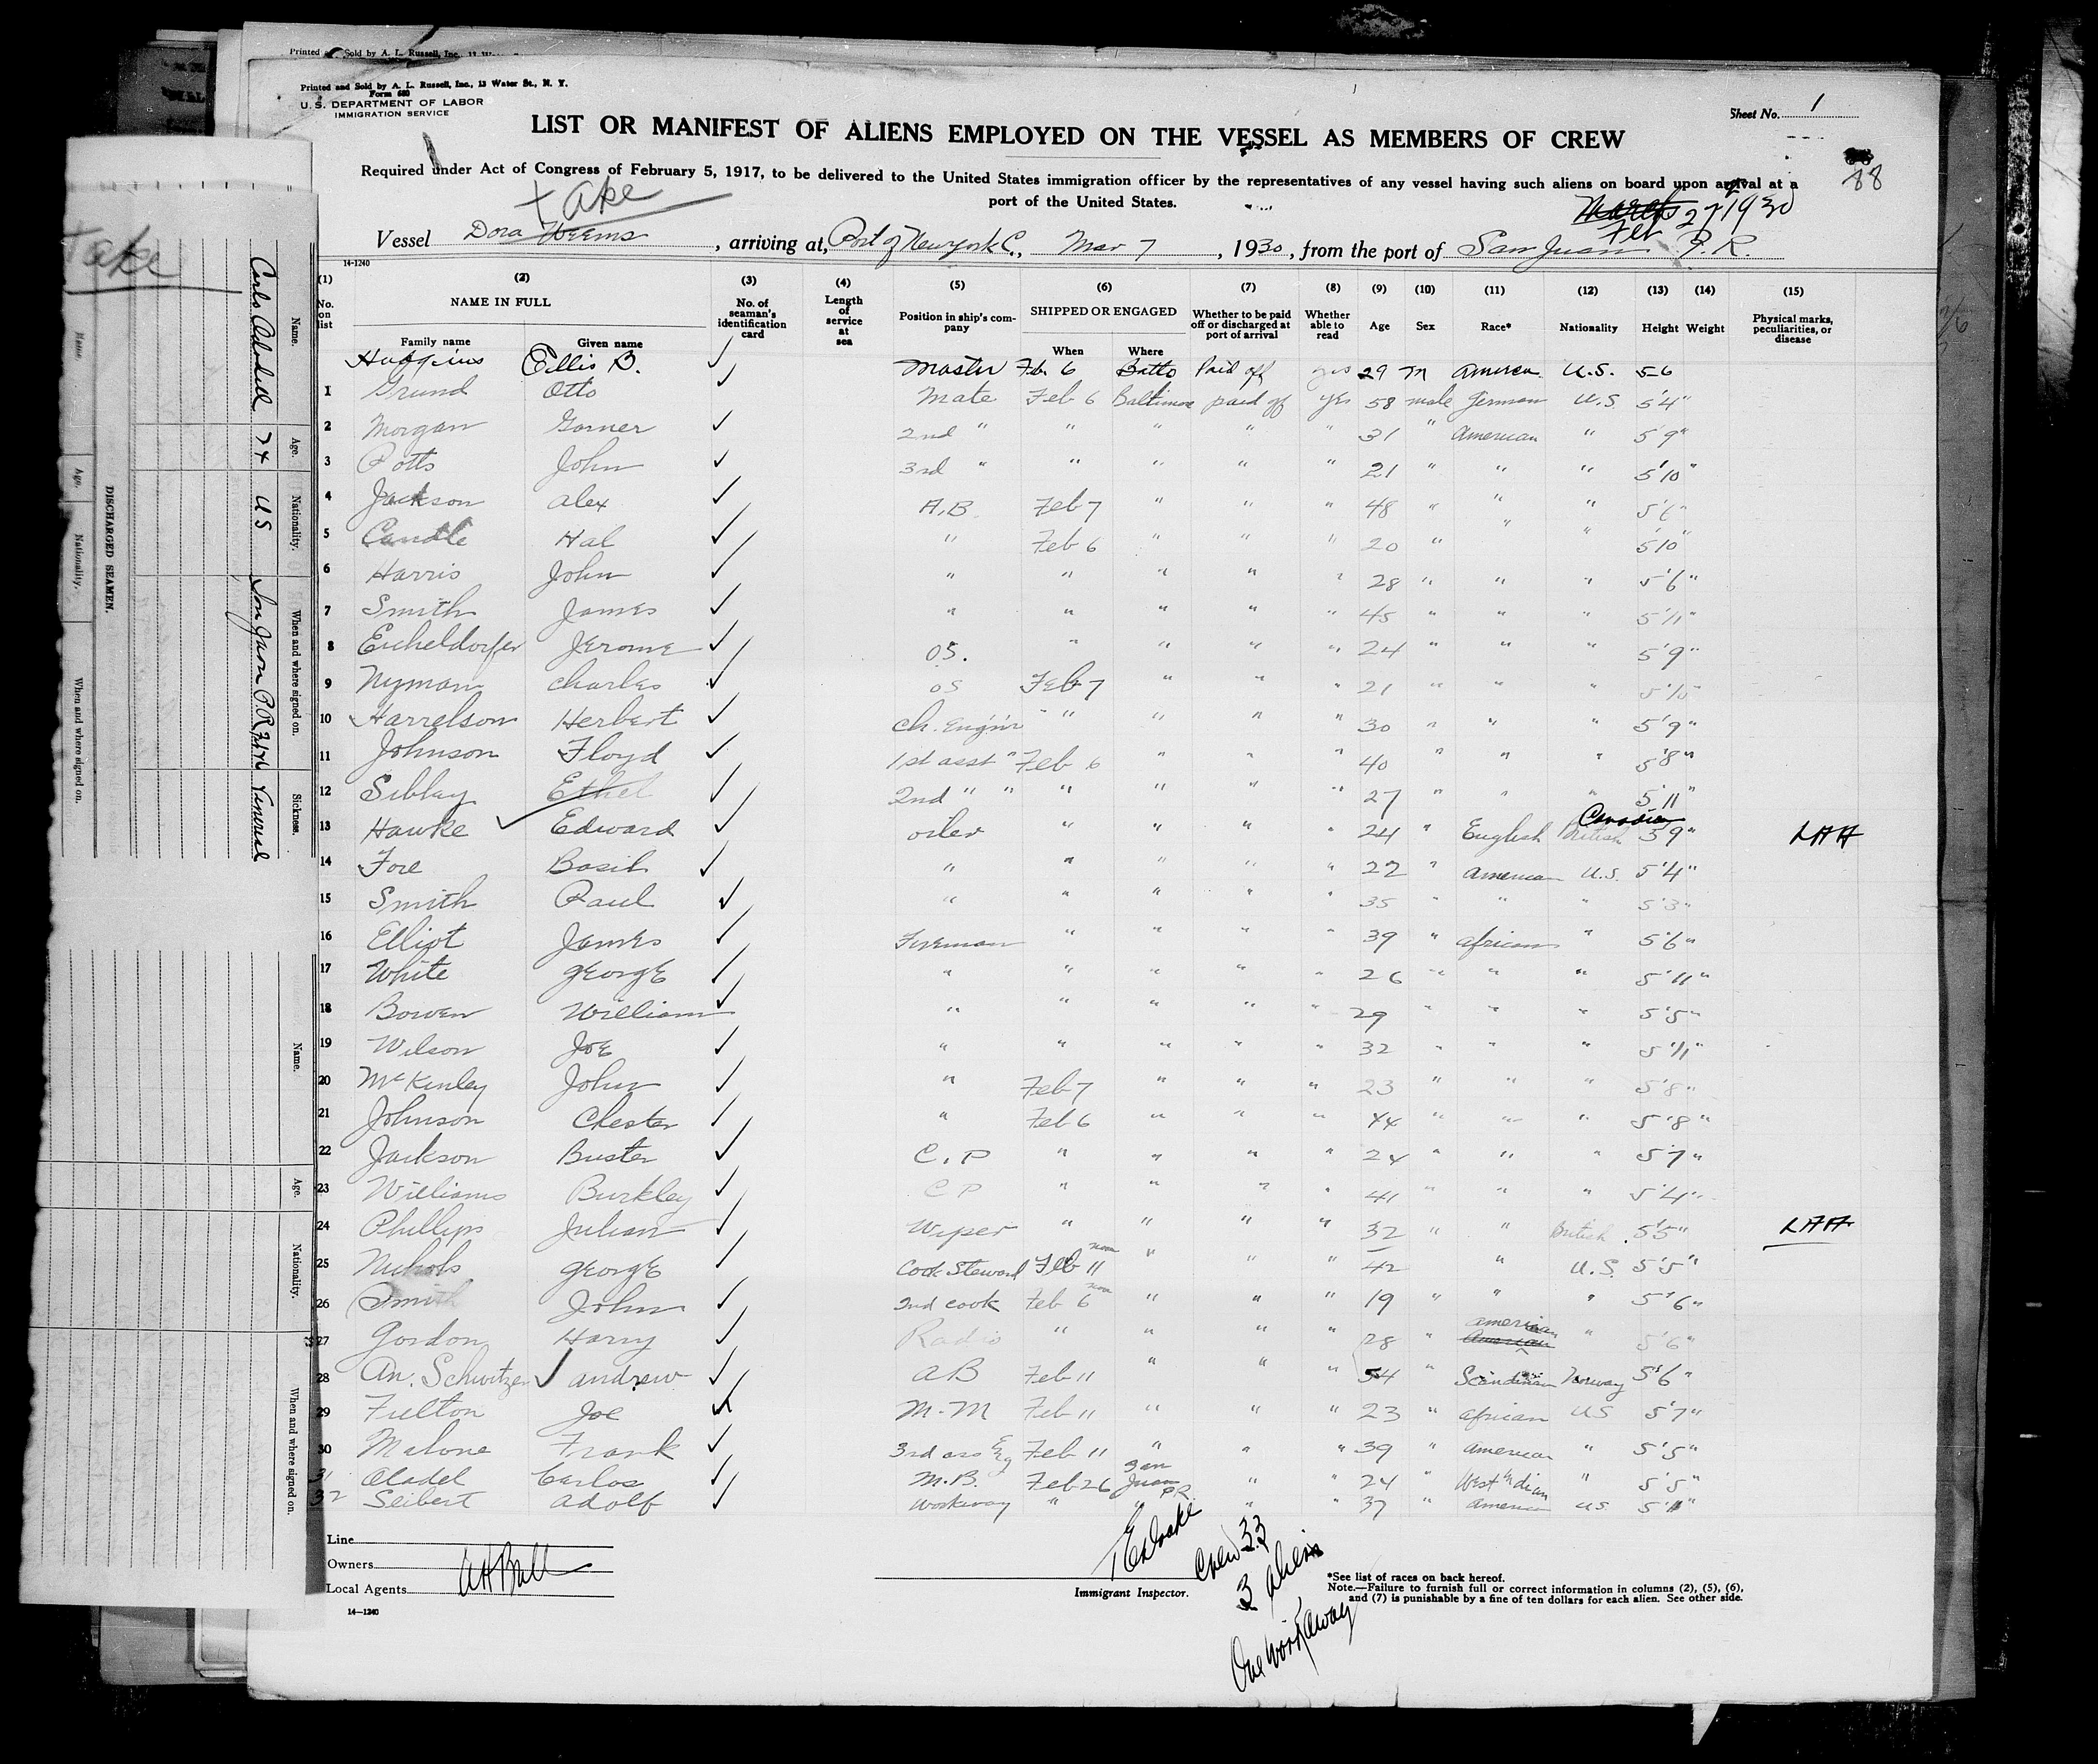 Printed and Sold by A. L. Russell, Inc., 13 Water St., N. Y.
Form 680
U. S. DEPARTMENT OF LABOR
IMMIGRATION SERVICE
Sheet No. 1
LIST OR MANIFEST OF ALIENS EMPLOYED ON THE VESSEL AS MEMBERS OF CREW
88
Required under Act of Congress of February 5, 1917, to be delivered to the United States immigration officer by the representatives of any vessel having such aliens on board upon arrival at a
port of the United States.
Take
March 27 1930
Feb
Vessel Dora Weems, arriving at, Port of New York C., Mar 7, 1930, from the port of San Juan P.R.
14-1240
(1) (2) (3) (4) (5) (6) (7) (8) (9) (10) (11) (12) (13) (14) (15)
No. on list NAME IN FULL No. of seaman's identification card Length of service at sea Position in ship's company SHIPPED OR ENGAGED Whether to be paid off or discharged at port of arrival Whether able to read Age Sex Race* Nationality Height Weight Physical marks, peculiarities, or disease
Family name Given name When Where
Huggins Ellis B. ✓ Master Feb. 6 Balto Paid off yes 29 M American U.S. 5 6
1 Grund Otto ✓ Mate Feb 6 Baltimore paid off yes 58 male German U.S 5'4"
2 Morgan Gorner ✓ 2nd " " " " " 31 " American " 5'9"
3 Potts John ✓ 3rd " " " " " 21 " " " 5'10"
4 Jackson Alex ✓ A.B Feb 7 " " " 48 " " " 5'6"
5 Candle Hal ✓ " Feb 6 " " " 20 " " " 5'10"
6 Harris John ✓ " " " " " 28 " " " 5'6"
7 Smith James ✓ " " " " " 45 " " " 5'11"
8 Eicheldorfer Jerome ✓ O.S. " " " " 24 " " " 5'9"
9 Nyman Charles ✓ OS Feb 7 " " " 21 " " " 5'10"
10 Harrelson Herbert ✓ Ch. Eng'n'r " " " " 30 " " " 5'9"
11 Johnson Floyd ✓ 1st asst " Feb 6 " " " 40 " " " 5'8"
12 Sibley Ethel ✓ 2nd " " " " " " 27 " " " 5'11"
13 Hawke ✓ Edward ✓ oiler " " " " 24 " English British Canadian 5'9" LAA
14 Foxe Basil ✓ " " " " " 22 " American U.S. 5'4"
15 Smith Paul ✓ " " " " " 35 " " " 5'3"
16 Elliot James ✓ Fireman " " " " 39 " African " 5'6"
17 White George ✓ " " " " " 26 " " " 5'11"
18 Bowen William ✓ " " " " " 29 " " " 5'5"
19 Wilson Joe ✓ " " " " " 32 " " " 5'11"
20 McKinley John ✓ " Feb 7 " " " 23 " " " 5'8"
21 Johnson Chester ✓ " Feb 6 " " " 44 " " " 5'8"
22 Jackson Buster ✓ C.P " " " " 24 " " " 5'7"
23 Williams Burkley ✓ C P " " " " 41 " " " 5'4"
24 Phillips Julian ✓ Wiper " " " " 32 " " British 5'5" LAA
25 Nichols George ✓ Cook Steward Feb 11 " " " 42 " U.S. 5'5"
26 Smith John ✓ 2nd cook Feb 6 " " " 19 " " " 5'6"
27 Gordon Harry ✓ Radio " " " " 28 " American " 5'6"
28 An. Schwitzer ✓ Andrew ✓ AB Feb 11 " " " 54 " Scandinavian Norway 5'6"
29 Fulton Joe ✓ M-M Feb 11 " " " 23 " African US 5'7"
30 Malone Frank ✓ 3rd ass Eng Feb 11 " " " 39 " American " 5'5"
31 Aladel Carlos ✓ M.B. Feb 26 San Juan P.R. " " 24 " West Indian " 5'5"
32 Seibert Adolf ✓ Workaway " " " 37 " American U.S. 5'11"
Line
Owners
Local Agents
AH Bull
14—1240
Immigrant Inspector.
Crew 33
3 aliens
One Workaway
*See list of races on back hereof.
Note.—Failure to furnish full or correct information in columns (2), (5), (6),
and (7) is punishable by a fine of ten dollars for each alien. See other side.
Take
DISCHARGED SEAMEN.
Name. Age. Nationality. When and where signed on. Sickness.
24 US San Juan P.R. Venereal
Name. Age. Nationality. When and where signed on.